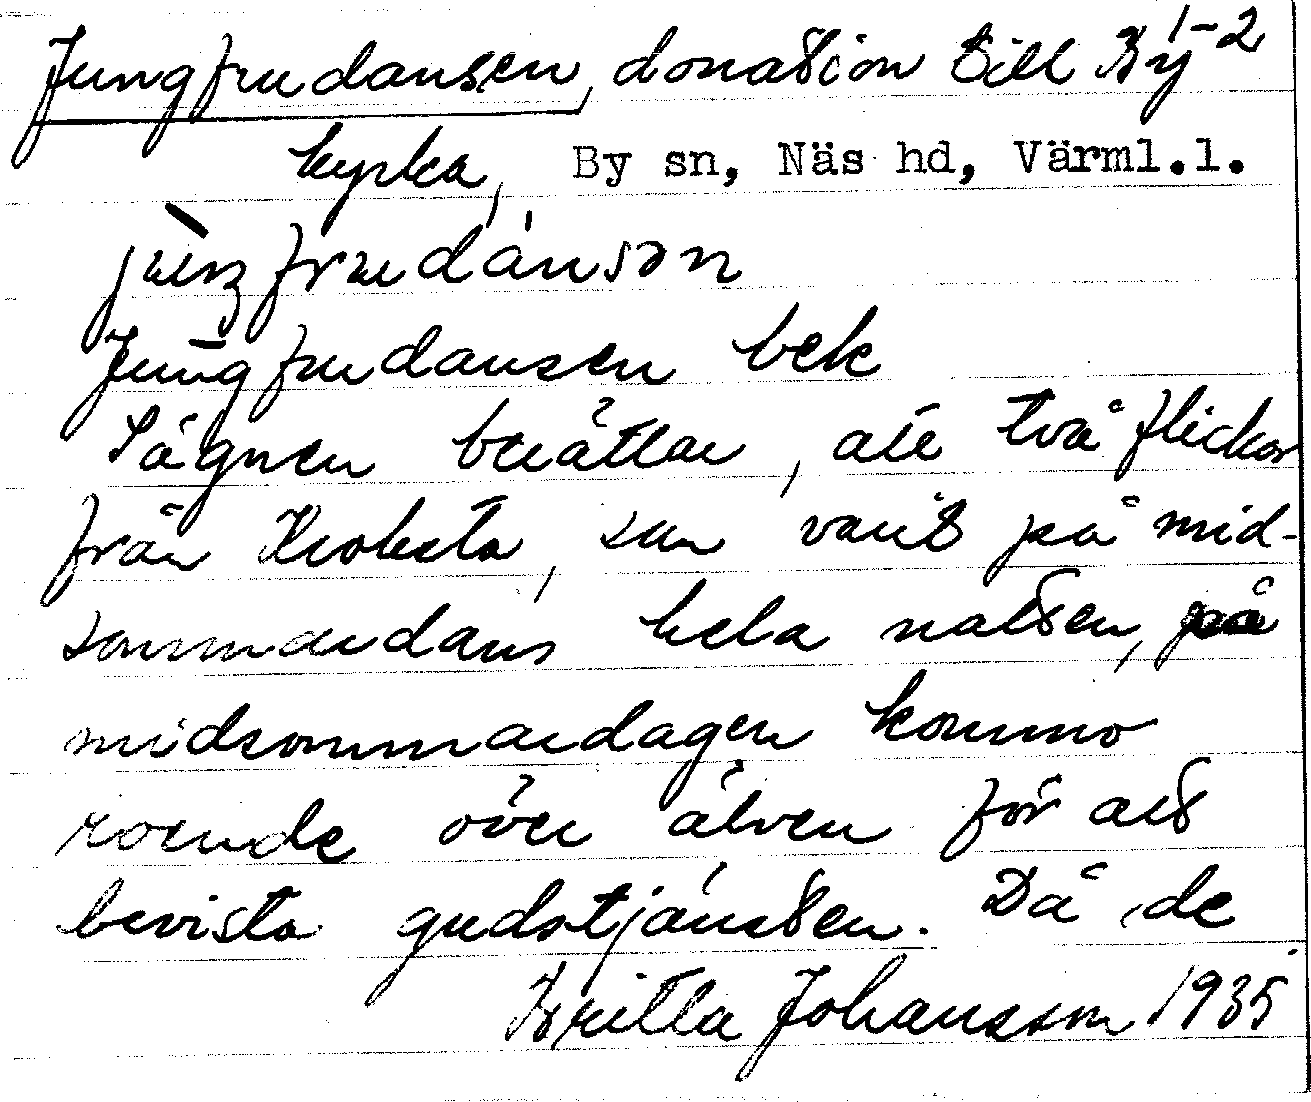 Jungfrudansen, donation till By 1-2
kyrka, By sn, Näs hd, Värml.l.
Jungfrudansen bek
Sägnen berättar, att två flickor
från Kroksta, som varit på mid-
sommardans hela natten, på
midsommardagen kommo
roende över älven för att
bevista gudstjänsten. Då de
Britta Johansson 1935